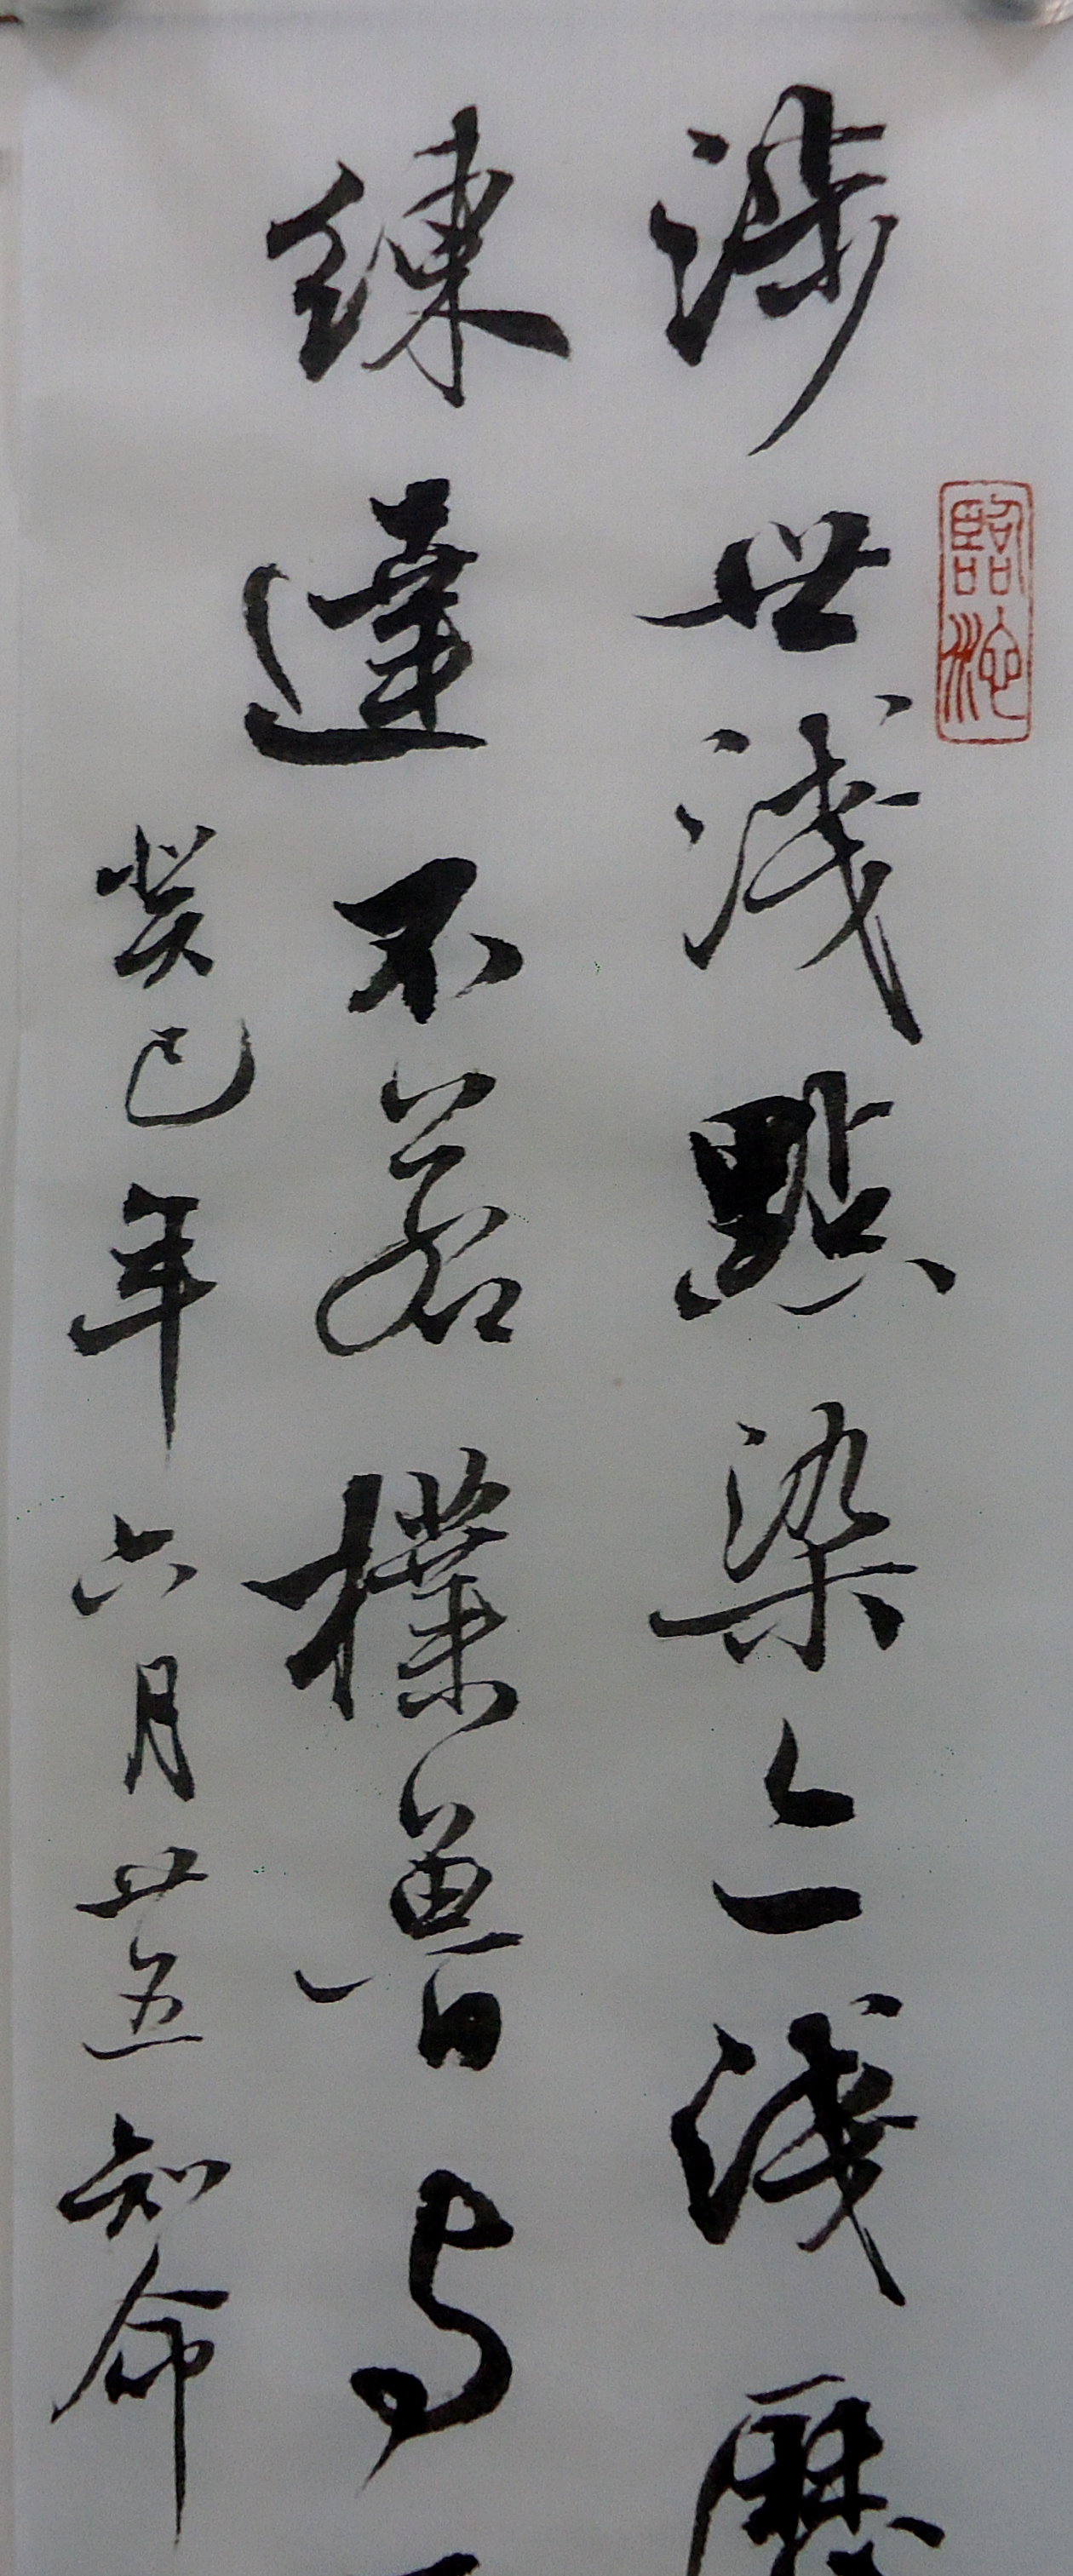 涉世淺點染亦淺歷
練達不若樸魯与
癸巳年六月廿五知命